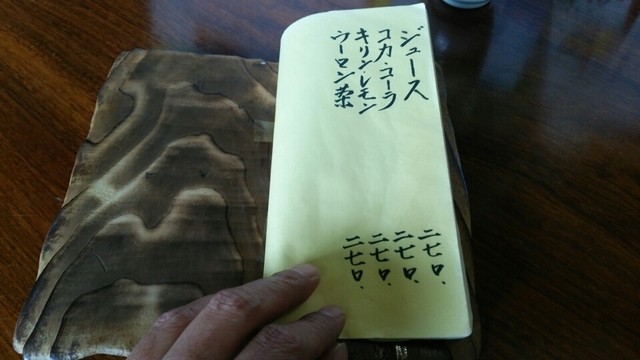 ジュース 二七〇.
コカ・コーラ 二七〇.
キリンレモン 二七〇.
ウーロン茶 二七〇.